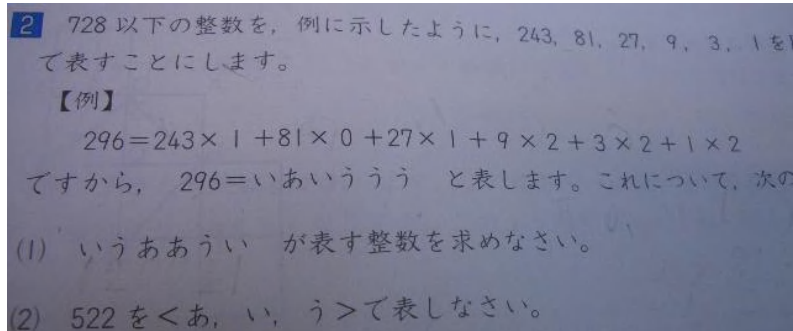 2 728以下の整数を, 例に示したように, 243, 81, 27, 9, 3, 1を
で表すことにします。
【例】
296=243×1+81×0+27×1+9×2+3×2+1×2
ですから, 296=いあいううう と表します。これについて, 次の
(1) いうああうい が表す整数を求めなさい。
(2) 522を<あ, い, う>で表しなさい。